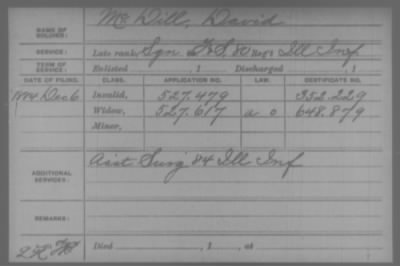 NAME OF SOLDIER: McDill, David
SERVICE: Late rank, Sgn F.S. 80 Reg't Ill Inf
TERM OF SERVICE: Enlisted , 1 Discharged , 1
DATE OF FILING. CLASS. APPLICATION NO. LAW. CERTIFICATE NO.
1884 Dec 6 Invalid, 527.479 352.229
Widow, 527.617 a o 648.879
Minor,
ADDITIONAL SERVICES: Asst Surg 84 Ill Inf
REMARKS:
Died , 1 , at